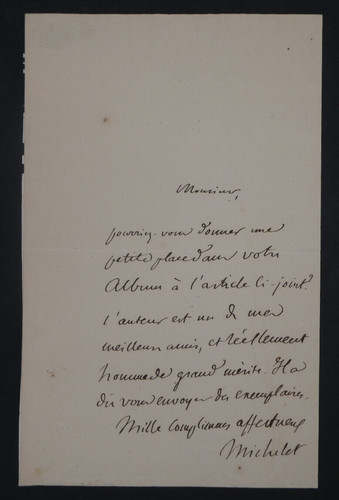 Monsieur,
pourriez-vous donner une
petite place dans votre
Album à l'article ci-joint?
l'auteur est un de mes
meilleurs amis, et réellement
homme de grand mérite. Il a
dû vous envoyer des exemplaires.
Mille complimens affectueux
Michelet